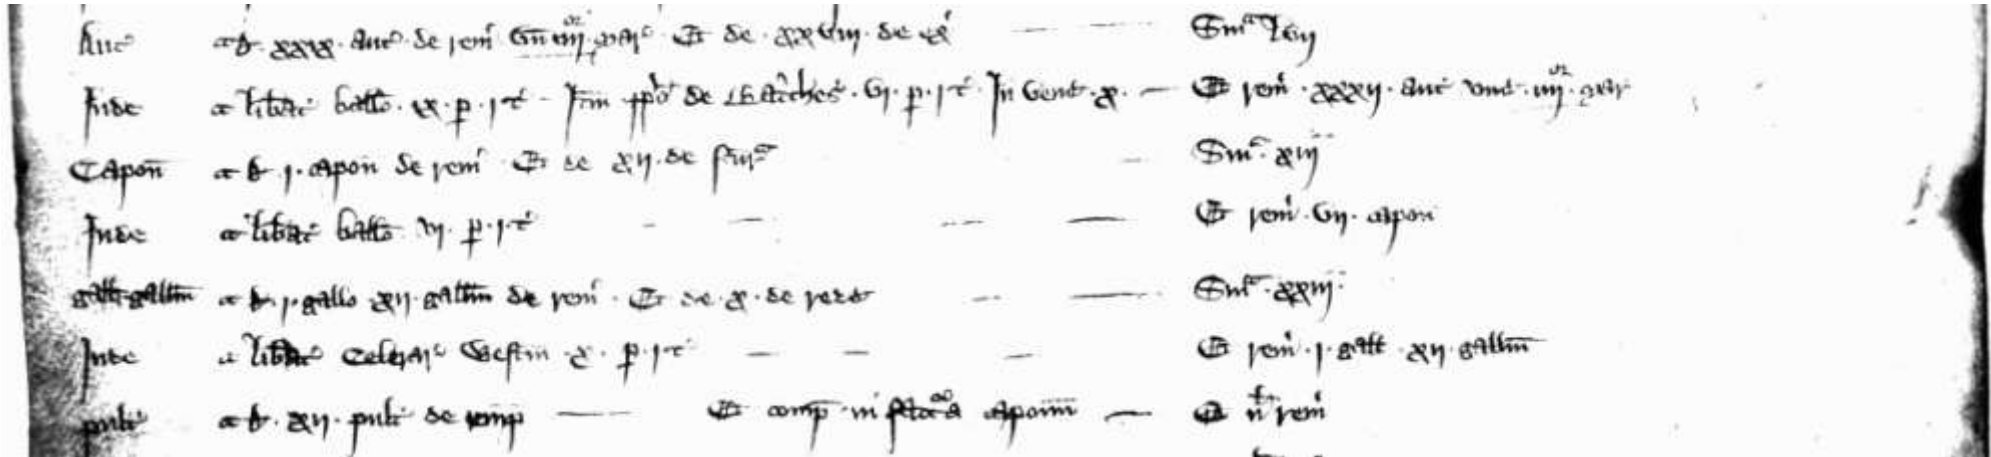 Auc' de xxix auc' de rem' unde iiij mar' Et de xxviij de ex' Sma lvij
Inde in libat' ball'o ix p j t' It'm p'po'ito de Vi p j t' In vend' x Et rem' xxxij auc' und' iiij mar'
Capon' de j capon' de rem' Et de xij de firma Sma xiij
Inde in libat' ball'o vj p j t' Et rem' vij capon'
gall' gallin' de j gallo xij gallin' de rem' Et de x de redd' Sma xxiij
Inde in libat' Celerar' Westm' x p j t' Et rem' j gall' xij gallin'
pulc' de xij pulc' de emp' Et comp' in capon' Et n' rem'